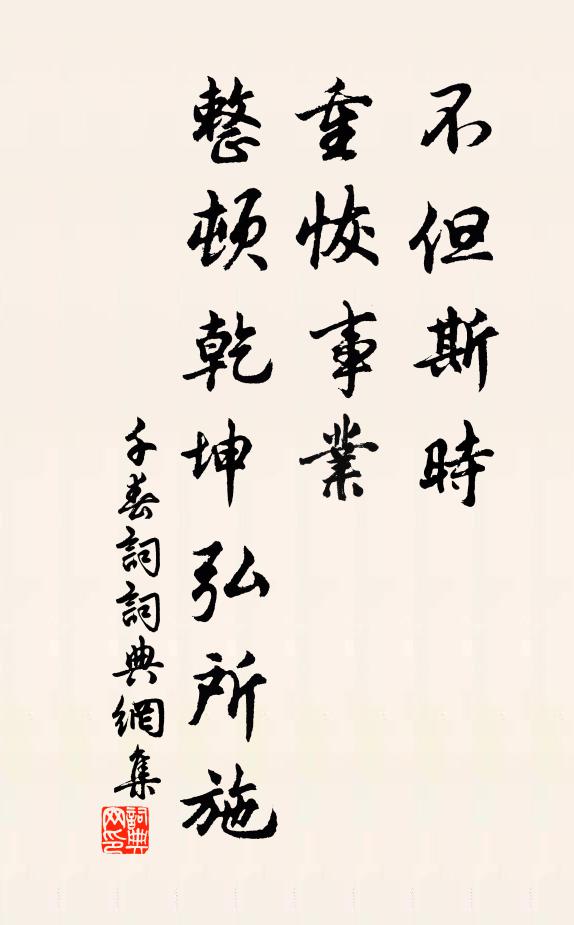 不但斯時
重恢事業
整頓乾坤弘所施
千春詞詞典網集
詞典
网印